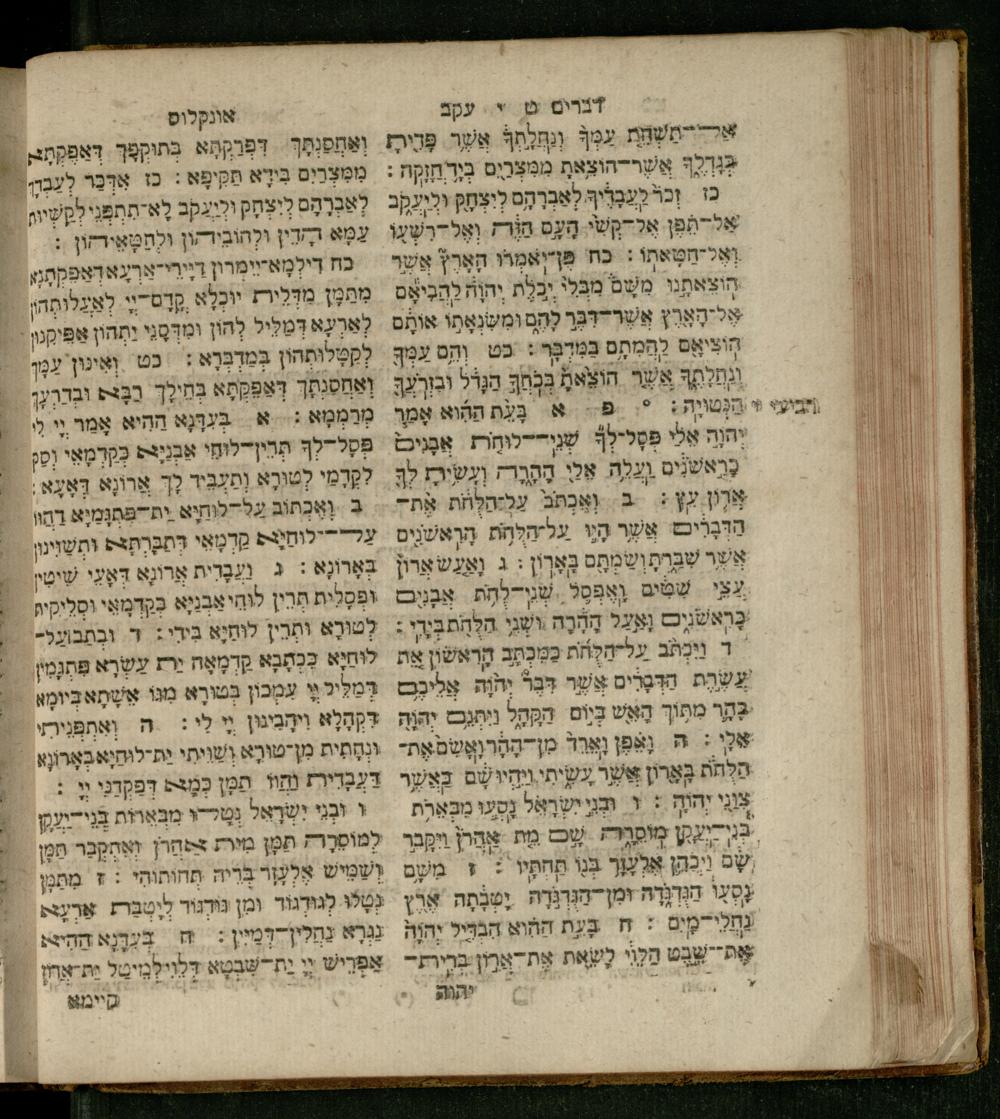 דברים ט י עקב
אַל־תַּשְׁחֵת עַמְּךָ וְנַחֲלָתְךָ אֲשֶׁר פָּדִיתָ
בְּגָדְלֶךָ אֲשֶׁר־הוֹצֵאתָ מִמִּצְרַיִם בְּיָד חֲזָקָה :
כז זְכֹר לַעֲבָדֶיךָ לְאַבְרָהָם לְיִצְחָק וּלְיַעֲקֹב
אַל־תֵּפֶן אֶל־קְשִׁי הָעָם הַזֶּה וְאֶל־רִשְׁעוֹ
וְאֶל־חַטָּאתוֹ : כח פֶּן־יֹאמְרוּ הָאָרֶץ אֲשֶׁר
הוֹצֵאתָנוּ מִשָּׁם מִבְּלִי יְכֹלֶת יְהוָה לַהֲבִיאָם
אֶל־הָאָרֶץ אֲשֶׁר־דִּבֶּר לָהֶם וּמִשִּׂנְאָתוֹ אוֹתָם
הוֹצִיאָם לַהֲמִתָם בַּמִּדְבָּר : כט וְהֵם עַמְּךָ
וְנַחֲלָתֶךָ אֲשֶׁר הוֹצֵאתָ בְּכֹחֲךָ הַגָּדֹל וּבִזְרֹעֲךָ
רביעי הַנְּטוּיָה : ° פ א בָּעֵת הַהִוא אָמַר
יְהוָה אֵלַי פְּסָל־לְךָ שְׁנֵי־לוּחֹת אֲבָנִים
כָּרִאשֹׁנִים וַעֲלֵה אֵלַי הָהָרָה וְעָשִׂיתָ לְּךָ
אֲרוֹן עֵץ : ב וְאֶכְתֹּב עַל־הַלֻּחֹת אֶת־
הַדְּבָרִים אֲשֶׁר הָיוּ עַל־הַלֻּחֹת הָרִאשֹׁנִים
אֲשֶׁר שִׁבַּרְתָּ וְשַׂמְתָּם בָּאָרוֹן : ג וָאַעַשׂ אֲרוֹן
עֲצֵי שִׁטִּים וָאֶפְסֹל שְׁנֵי־לֻחֹת אֲבָנִים
כָּרִאשֹׁנִים וָאַעַל הָהָרָה וּשְׁנֵי הַלֻּחֹת בְּיָדִי :
ד וַיִּכְתֹּב עַל־הַלֻּחֹת כַּמִּכְתָּב הָרִאשׁוֹן אֵת
עֲשֶׂרֶת הַדְּבָרִים אֲשֶׁר דִּבֶּר יְהוָה אֲלֵיכֶם
בָּהָר מִתּוֹךְ הָאֵשׁ בְּיוֹם הַקָּהָל וַיִּתְּנֵם יְהוָה
אֵלָי : ה וָאֵפֶן וָאֵרֵד מִן־הָהָר וָאָשִׂם אֶת־
הַלֻּחֹת בָּאָרוֹן אֲשֶׁר עָשִׂיתִי וַיִּהְיוּ שָׁם כַּאֲשֶׁר
צִוַּנִי יְהוָה : ו וּבְנֵי יִשְׂרָאֵל נָסְעוּ מִבְּאֵרֹת
בְּנֵי־יַעֲקָן מוֹסֵרָה שָׁם מֵת אַהֲרֹן וַיִּקָּבֵר
שָׁם וַיְכַהֵן אֶלְעָזָר בְּנוֹ תַּחְתָּיו : ז מִשָּׁם
נָסְעוּ הַגֻּדְגֹּדָה וּמִן־הַגֻּדְגֹּדָה יָטְבָתָה אֶרֶץ
נַחֲלֵי־מָיִם : ח בָּעֵת הַהִוא הִבְדִּיל יְהוָה
אֶת־שֵׁבֶט הַלֵּוִי לָשֵׂאת אֶת־אֲרוֹן בְּרִית־
יהוה
אונקלוס
וְאַחֲסַנְתָּךְ דִּפְרַקְתָּא בְּתוּקְפָךְ דְּאַפֶּקְתָּא
מִמִּצְרַיִם בִּידָא תַקִּיפָא : כז אִדְּכַר לְעַבְדָךְ
לְאַבְרָהָם לְיִצְחָק וּלְיַעֲקֹב לָא־תִתְפְּנֵי לְקַשְׁיוּת
עַמָּא הָדֵין וּלְחוֹבֵיהוֹן וְלַחֲטָאֵיהוֹן :
כח דִּילְמָא־יֵימְרוּן דָּיְירֵי־אַרְעָא דְאַפֶּקְתָּנָא
מִתַּמָּן מִדְּלֵית יוּכְלָא קֳדָם־יְיָ לְאַעֲלוּתְהוֹן
לְאַרְעָא דְּמַלֵּיל לְהוֹן וּמִדְּסָנֵי יַתְהוֹן אַפֵּיקִנּוּן
לְקַטָּלוּתְהוֹן בְּמַדְבְּרָא : כט וְאִינּוּן עַמָּךְ
וְאַחֲסַנְתָּךְ דְּאַפֶּקְתָּא בְּחֵילָךְ רַבָּא וּבִדְרָעָךְ
מְרַמְמָא : א בְּעִדָּנָא הַהִיא אָמַר יְיָ לִי
פְּסָל־לְךָ תְּרֵין־לוּחֵי אַבְנַיָּא כְּקַדְמָאֵי וְסַק
לִקְדָמַי לְטוּרָא וְתַעְבֵּיד לָךְ אֲרוֹנָא דְאָעָא :
ב וְאֶכְתּוֹב עַל־לוּחַיָּא יַת־פִּתְגָּמַיָּא דַּהֲווֹ
עַל־לוּחַיָּא קַדְמָאֵי דִּתְבַרְתָּא וּתְשַׁוִּינוּן
בַּאֲרוֹנָא : ג וַעֲבָדִית אֲרוֹנָא דְּאָעֵי שִׁיטִין
וּפְסָלִית תְּרֵין לוּחֵי אַבְנַיָּא כְּקַדְמָאֵי וּסְלֵיקִית
לְטוּרָא וּתְרֵין לוּחַיָּא בִּידִי : ד וּכְתַב עַל־
לוּחַיָּא כִּכְתָבָא קַדְמָאָה יַת עַשְׂרָא פִּתְגָּמִין
דְּמַלֵּיל יְיָ עִמְּכוֹן בְּטוּרָא מִגּוֹ אֶשָּׁתָא בְּיוֹמָא
דִקְהָלָא וִיהָבִינוּן יְיָ לִי : ה וְאִתְפְּנִיתִי
וּנְחָתִית מִן־טוּרָא וְשַׁוִּיתִי יַת־לוּחַיָּא בַּאֲרוֹנָא
דַּעֲבָדִית וַהֲווֹ תַמָּן כְּמָא דְּפַקְּדַנִי יְיָ :
ו וּבְנֵי יִשְׂרָאֵל נְטָלוּ מִבְּאֵרוֹת בְּנֵי־יַעֲקָן
לְמוֹסֵרָה תַּמָּן מִית אַהֲרֹן וְאִתְקְבַר תַּמָּן
וְשַׁמִּישׁ אֶלְעָזָר בְּרֵיהּ תְּחוֹתוֹהִי : ז מִתַּמָּן
נְטָלוּ לְגוּדְגּוֹד וּמִן גּוּדְגּוֹד לְיָטְבַת אַרְעָא
נַגְדָא נַחֲלִין־דְּמַיִין : ח בְּעִדָּנָא הַהִיא
אַפְרִישׁ יְיָ יַת־שִׁבְטָא דְלֵוִי לְמֵיטַל יַת־אֲרוֹן
קיימא